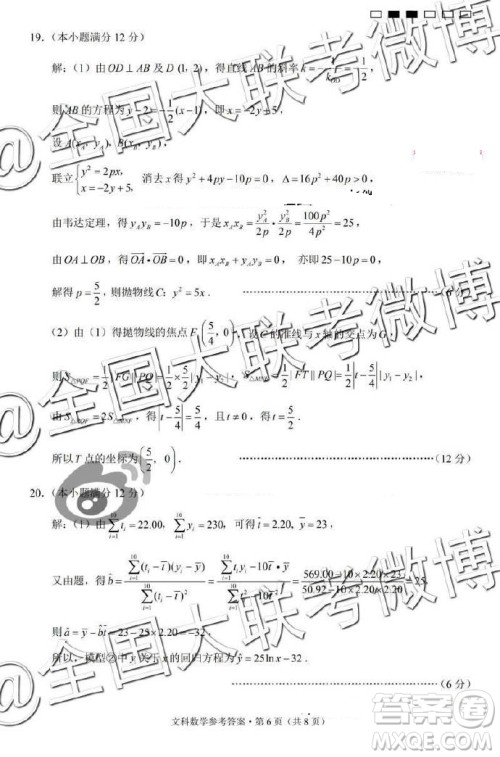 19.（本小题满分 12 分）
解：（1）由 OD⊥AB 及 D（1，2），得直线 AB 的斜率 k=
则 AB 的方程为 y-2=-1/2(x-1)，即 x=-2y+5，
设 A(x_A, y_A)，B(x_B, y_B)，
联立 {y²=2px, x=-2y+5, 消去 x 得 y²+4py-10p=0，Δ=16p²+40p>0，
由韦达定理，得 y_A y_B=-10p，于是 x_A x_B=y_A²/2p·y_B²/2p=100p²/4p²=25，
由 OA⊥OB，得 OA·OB=0，即 x_A x_B+y_A y_B=0，亦即 25-10p=0，
解得 p=5/2，则抛物线 C：y²=5x．（6 分）
（2）由（1）得抛物线的焦点 F(5/4, 0)，设 C 的准线与 x 轴的交点为 G，
则 |FG||PQ|=1/2×5/2|y₁-y₂|，=1/2|FT||PQ|=1/2|t-5/4||y₁-y₂|，
由 =2S，得 |t-5/4|=5/4，且 t≠0，得 t=5/2．
所以 T 点的坐标为 (5/2, 0)．（12 分）
20.（本小题满分 12 分）
解：（1）由 ∑(i=1,10) t_i=22.00，∑(i=1,10) y_i=230，可得 t̄=2.20，ȳ=23，
又由题，得 b̂=∑(i=1,10)(t_i-t̄)(y_i-ȳ)/∑(i=1,10)(t_i-t̄)²=(∑(i=1,10) t_i y_i-10t̄·ȳ)/(∑(i=1,10) t_i²-10t̄²)=(569.00-10×2.20×23)/(50.92-10×2.20×2.20)=25，
则 â=ȳ-b̂t̄=23-25×2.20=-32，
所以，模型②中 y 关于 x 的回归方程为 ŷ=25ln x-32．
（6 分）
文科数学参考答案·第 6 页（共 8 页）
@全国大联考微博
@全国大联考微博
@全国大联考微博
答案圈
MXQE.COM